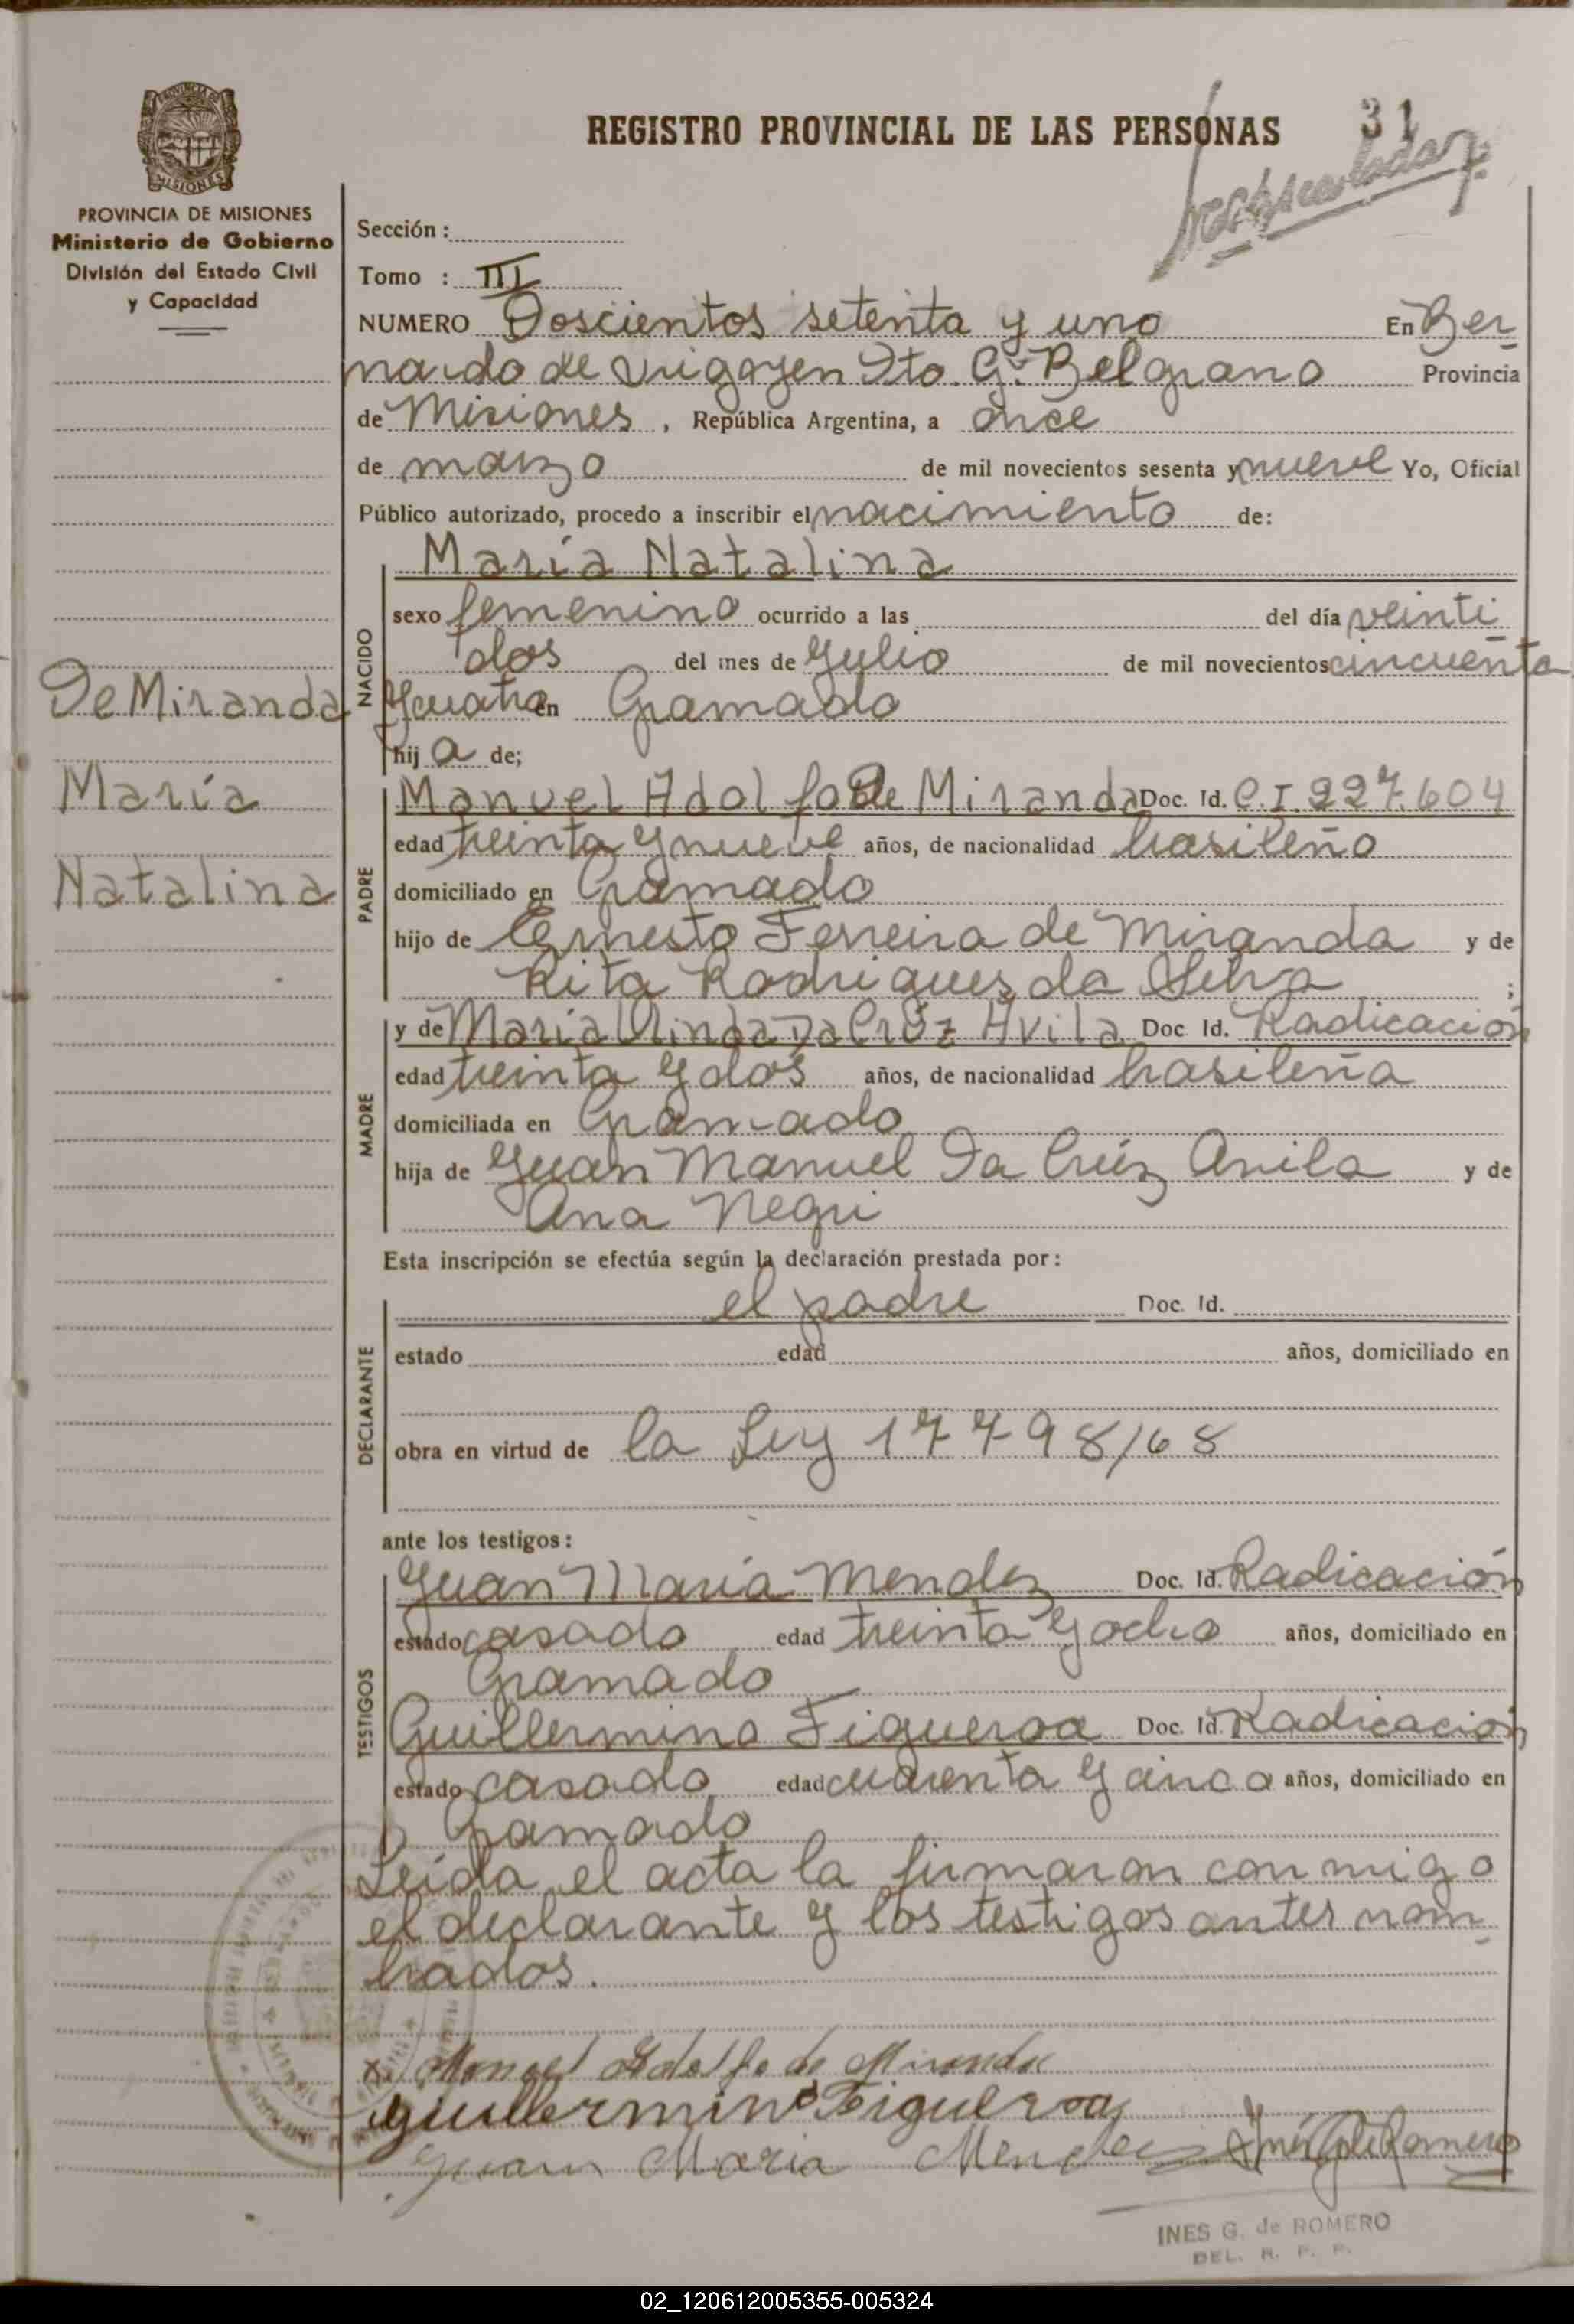 REGISTRO PROVINCIAL DE LAS PERSONAS
31
PROVINCIA DE
MISIONES
PROVINCIA DE MISIONES
Ministerio de Gobierno
División del Estado Civil
y Capacidad
Sección :
Tomo : III
NUMERO Doscientos setenta y uno En Ber
nardo de Yrigoyen Dto. G. Belgrano Provincia
de Misiones, República Argentina, a once
de marzo de mil novecientos sesenta y nueve Yo, Oficial
Público autorizado, procedo a inscribir el nacimiento de:
María Natalina
NACIDO
sexo femenino ocurrido a las del día veinti
dos del mes de Julio de mil novecientos cincuenta
y cuatro en Gramado
hij a de;
De Miranda
María
Natalina
PADRE
Manuel Adolfo de Miranda Doc. Id. C.I. 227.604
edad treinta y nueve años, de nacionalidad brasileño
domiciliado en Gramado
hijo de Ernesto Ferreira de Miranda y de
Rita Rodrigues da Silva ;
MADRE
y de María Olinda Da Crúz Avila Doc Id. Radicación
edad treinta y dos años, de nacionalidad brasileña
domiciliada en Gramado
hija de Juan Manuel Da Crúz Avila y de
Ana Negri
Esta inscripción se efectúa según la declaración prestada por:
DECLARANTE
el padre Doc. Id.
estado edad años, domiciliado en
obra en virtud de la Ley 17798/68
ante los testigos:
TESTIGOS
Juan María Mendez Doc. Id. Radicación
estado casado edad treinta y ocho años, domiciliado en
Gramado
Guillermino Figueroa Doc. Id. Radicación
estado casado edad cuarenta y cinco años, domiciliado en
Gramado
Leída el acta la firmaron con migo
el declarante y los testigos antes nom
brados.
x Manoel Adolfo de Miranda
Guillermino Figueroa
Juan Maria Mendez
Romero
INES G. de ROMERO
DEL. R. P. P.
02_120612005355-005324